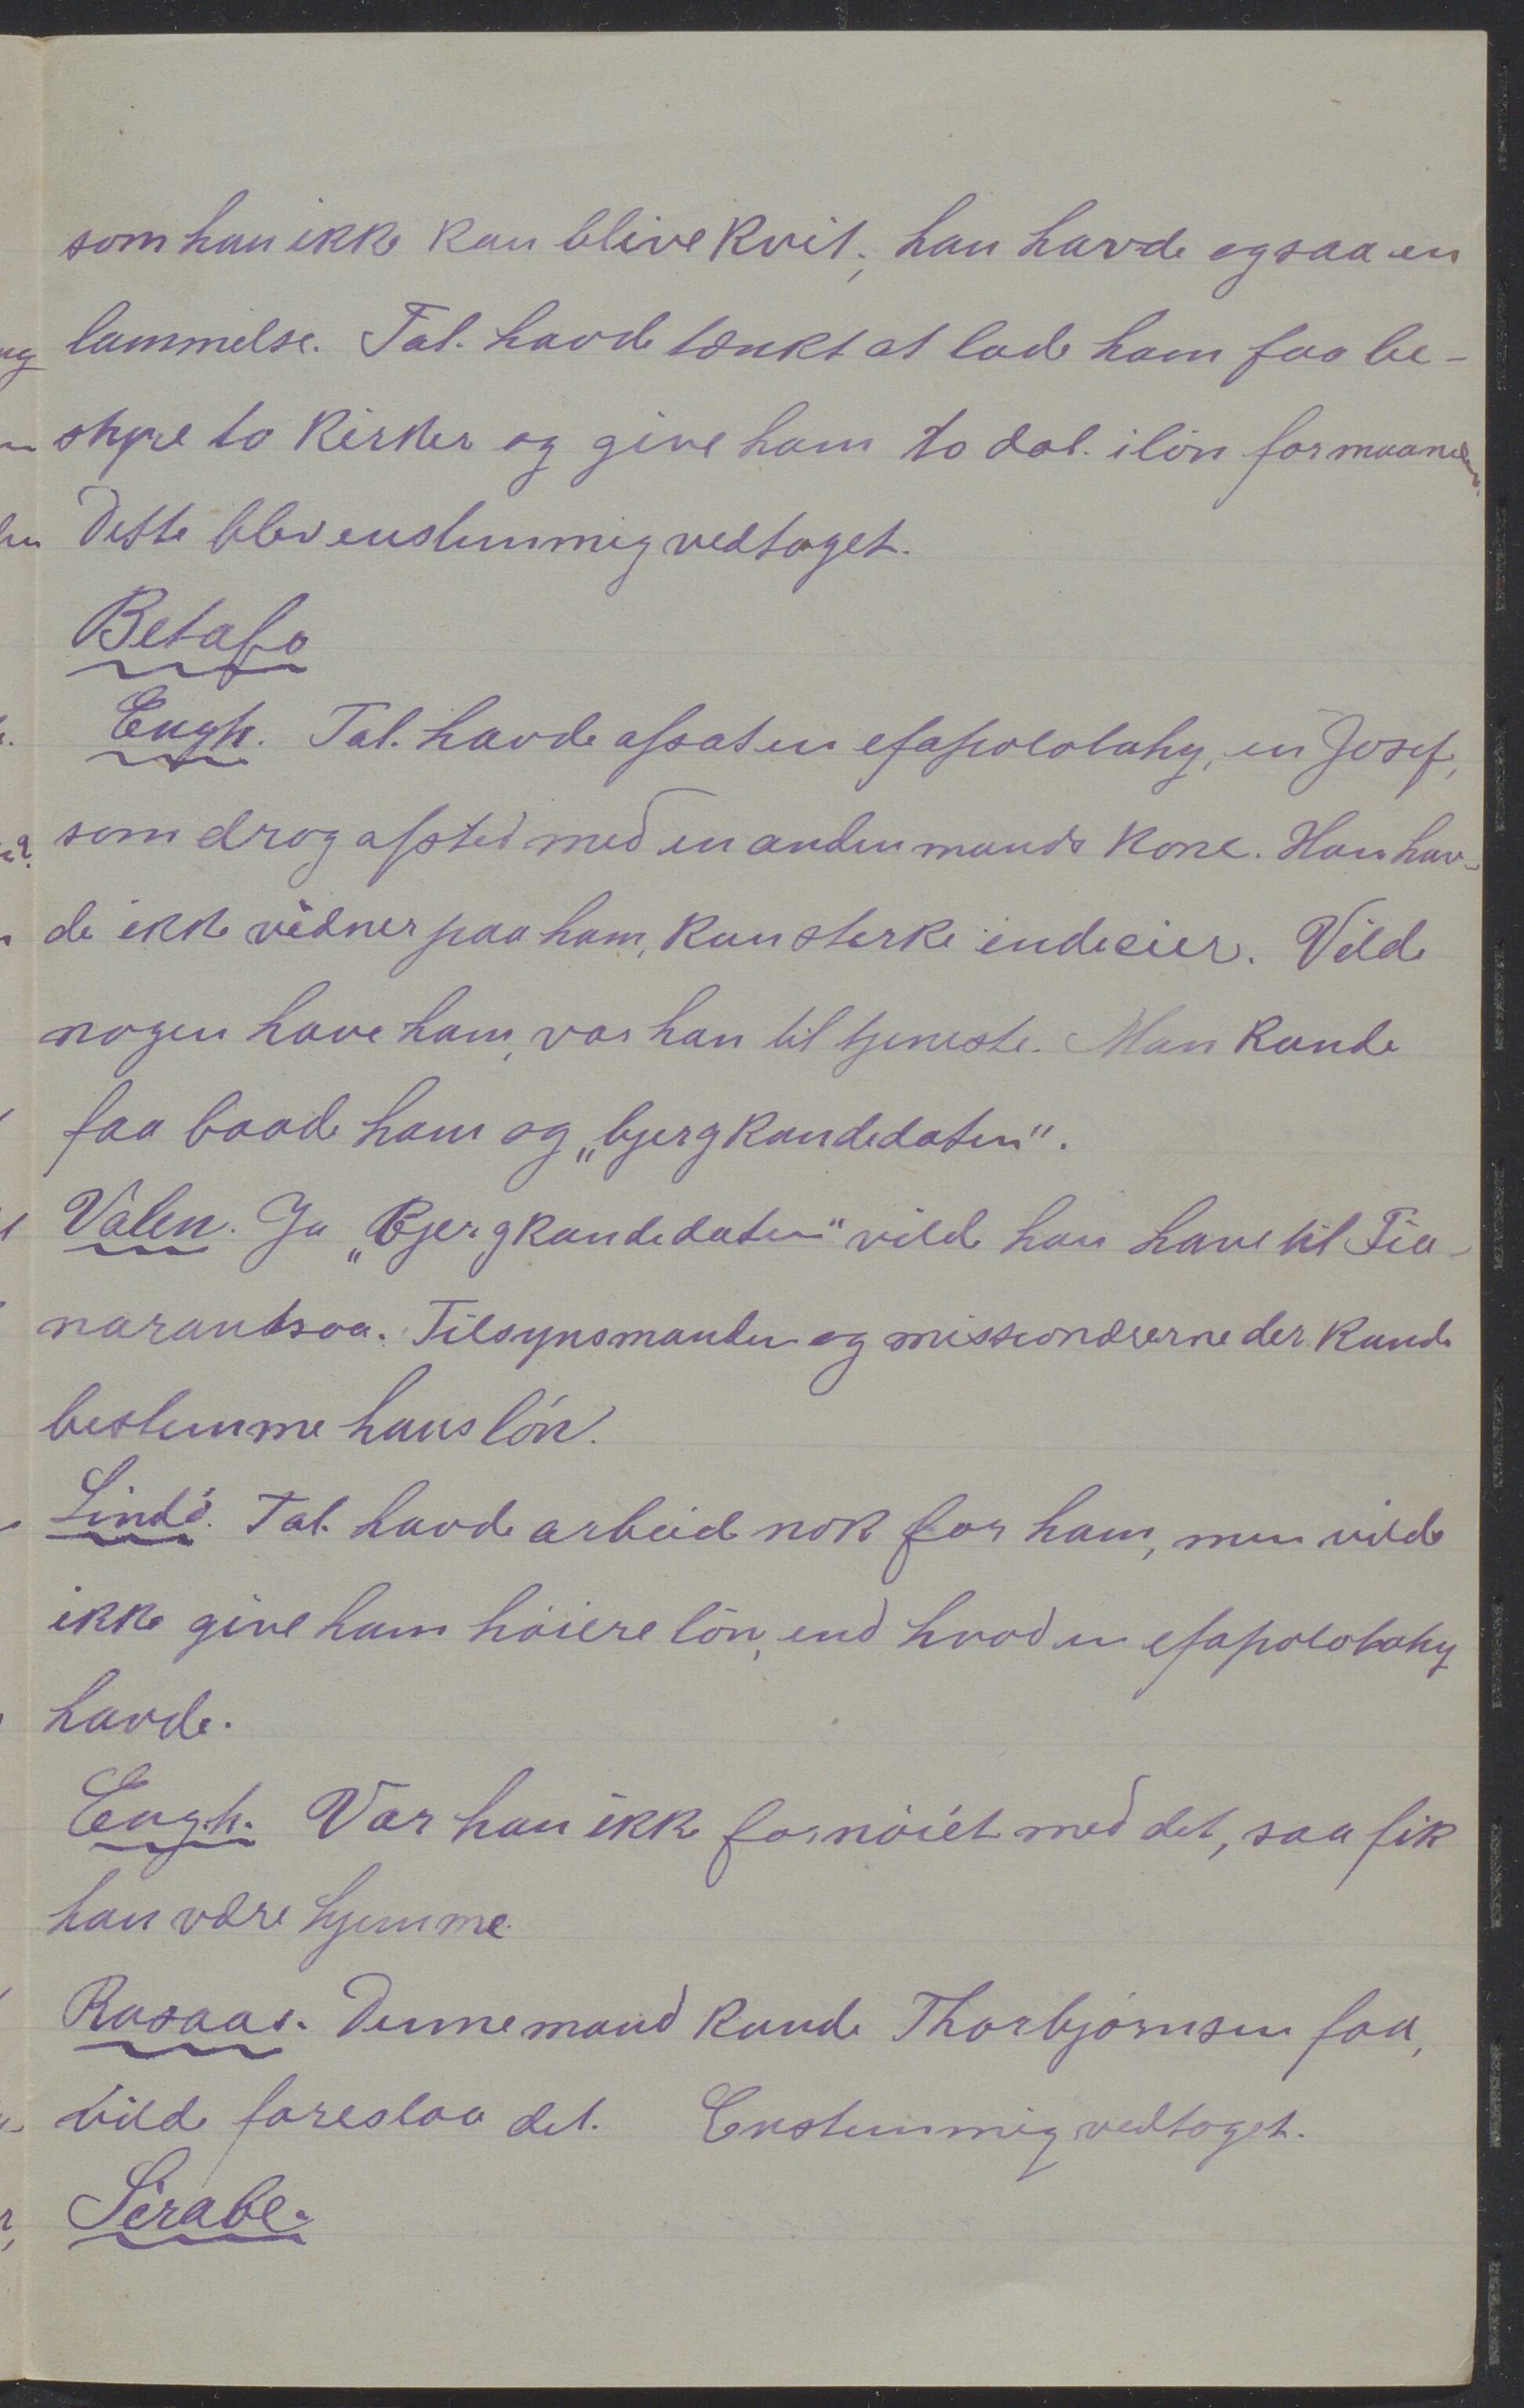 som han ikke kan blive kvit; han havde ogsaa en
lammelse. Tal. havde tænkt at lade ham faa be-
styre to kirker og give ham to dol. i lön for maaneden.
Dette blev enstemmig vedtaget.
Betafo
Engh. Tal. havde afsat en efapololahy, en Josef,
som drog afsted med en anden mands kone. Han hav-
de ikke vidner paa ham, kun sterke indicier. Vilde
nogen have ham, var han til tjeneste. Man kunde
faa baade ham og „bjergkandidaten".
Valen. Ja „Bjergkandidaten" vilde han have til Fia-
narantsoa. Tilsynsmanden og missionærerne der kunde
bestemme hans lön.
Lindö. Tal. havde arbeide nok for ham, men vilde
ikke give ham höiere lön, end hvad en efapololahy
havde.
Engh. Var han ikke fornöiet med det, saa fik
han være hjemme.
Rosaas. Denne mand kunde Thorbjörnsen faa,
vilde foreslaa det. Enstemmig vedtaget.
Sirabe.